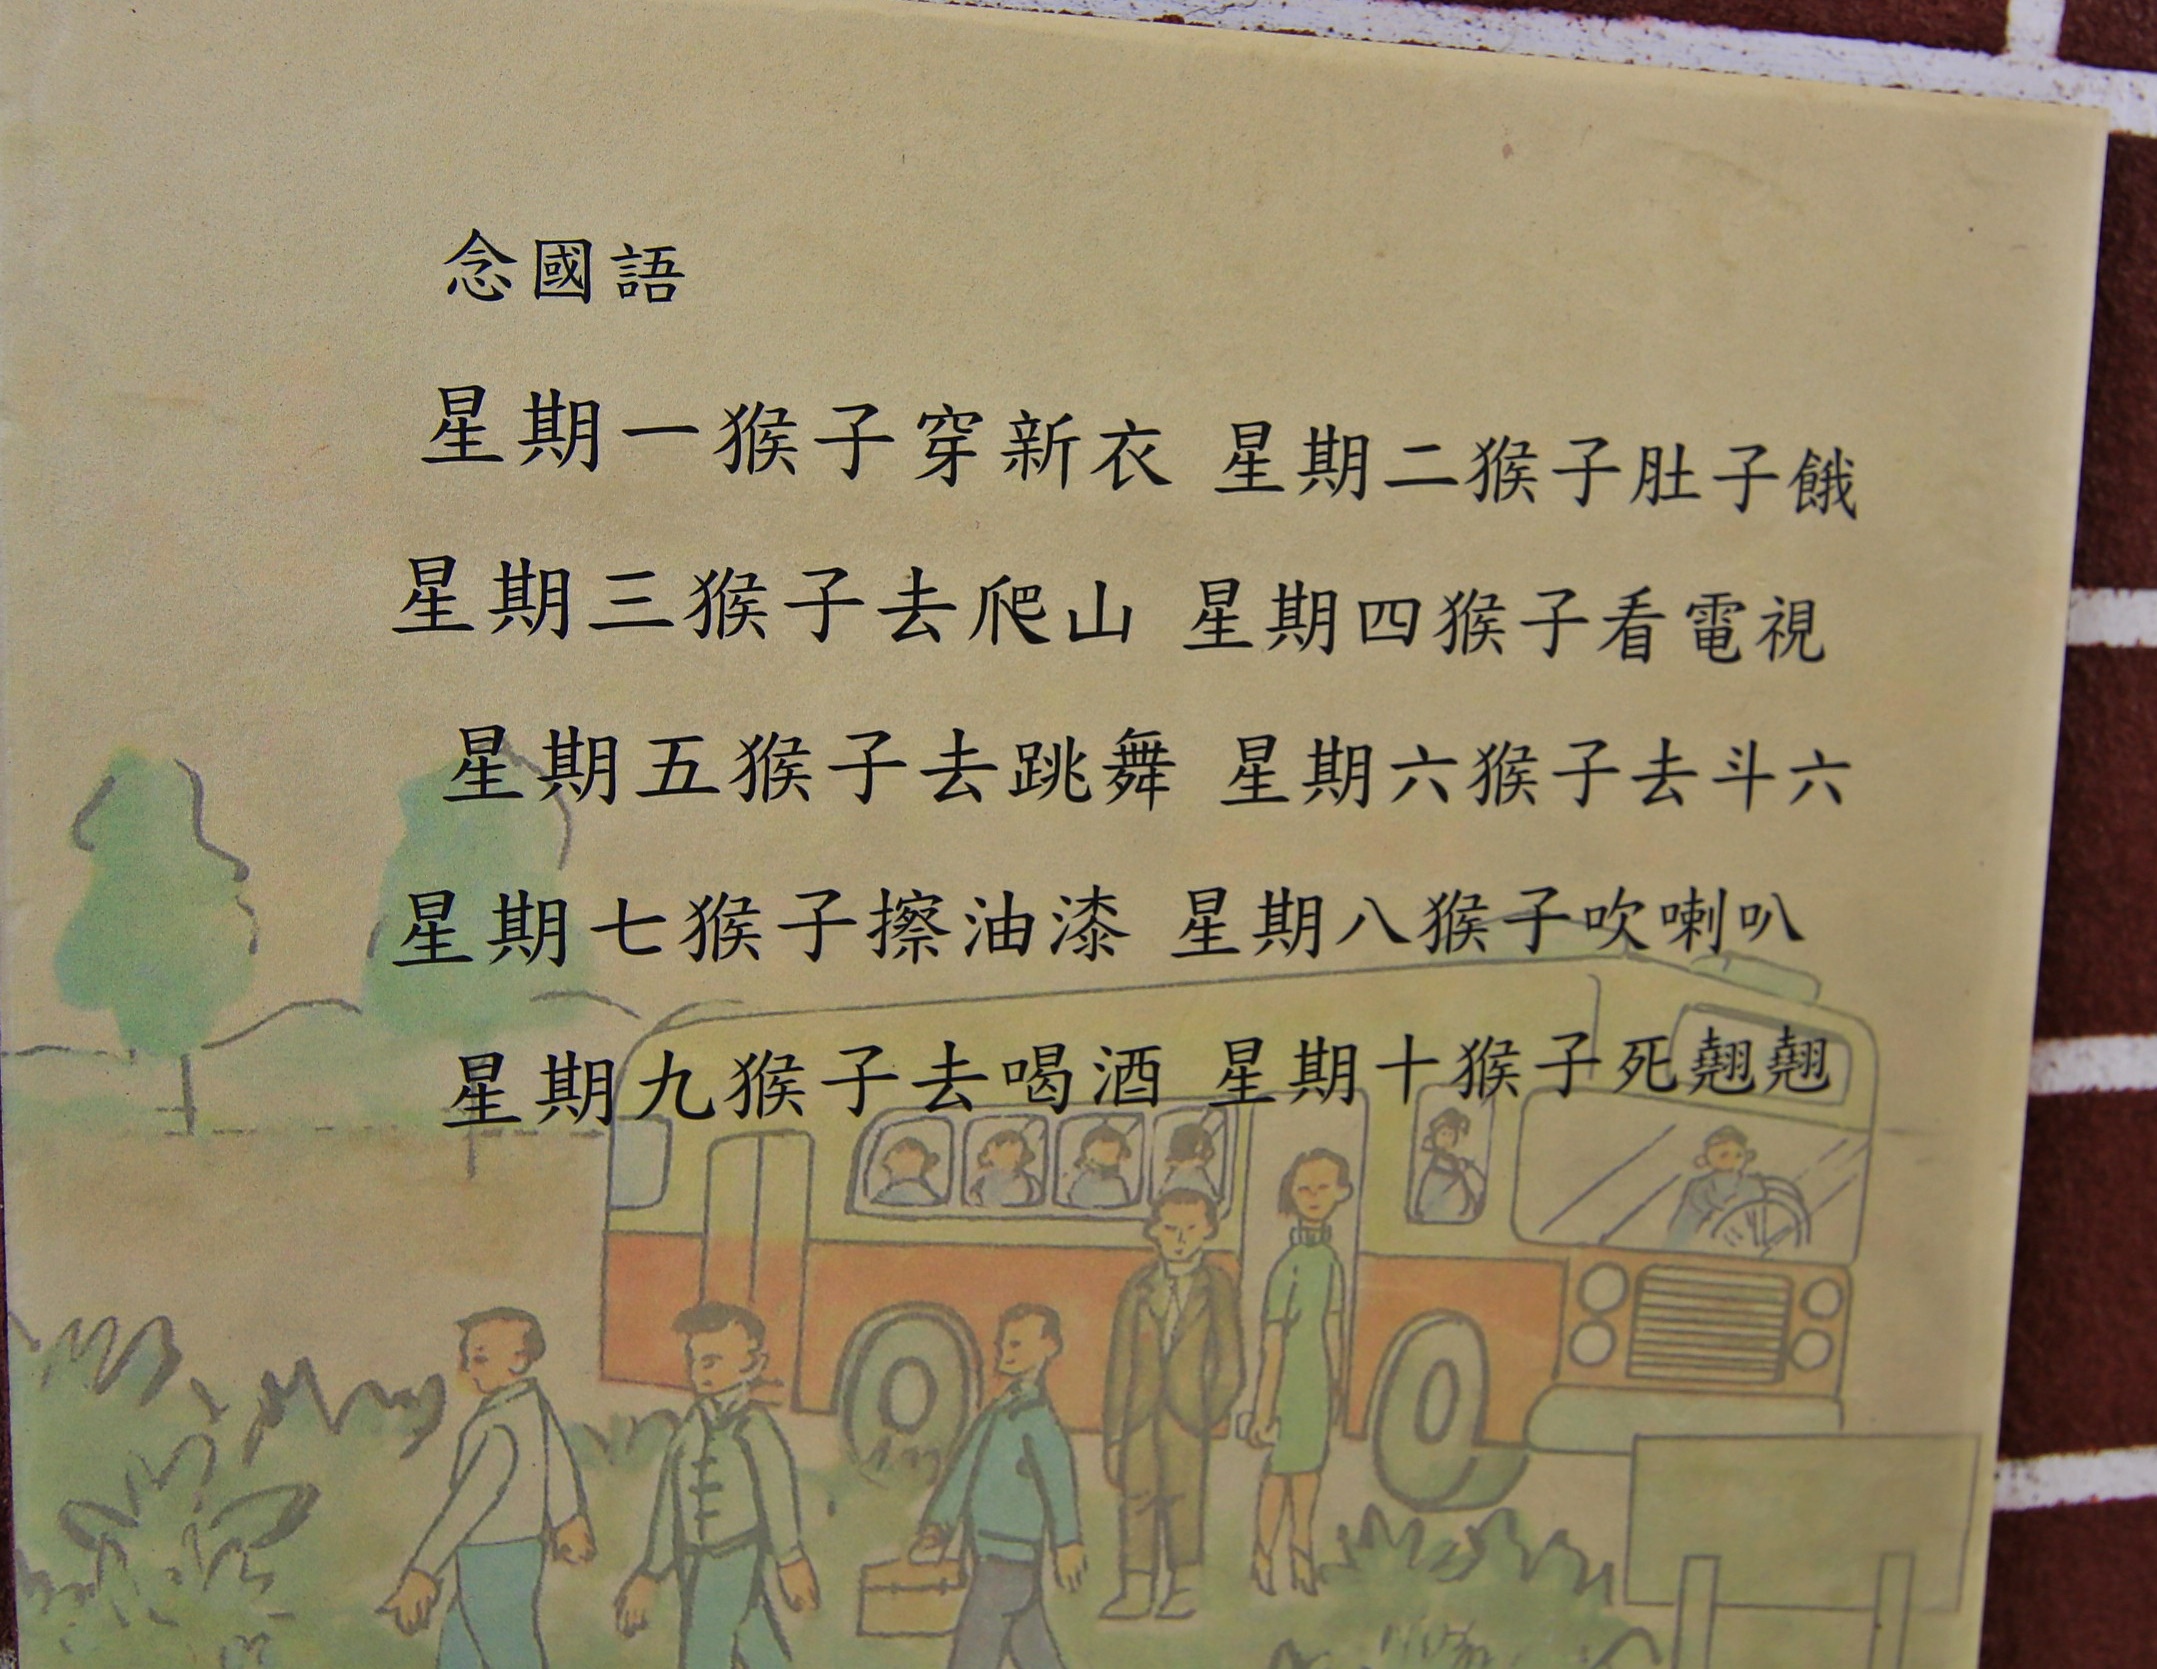 念國語
星期一猴子穿新衣 星期二猴子肚子餓
星期三猴子去爬山 星期四猴子看電視
星期五猴子去跳舞 星期六猴子去斗六
星期七猴子擦油漆 星期八猴子吹喇叭
星期九猴子去喝酒 星期十猴子死翹翹